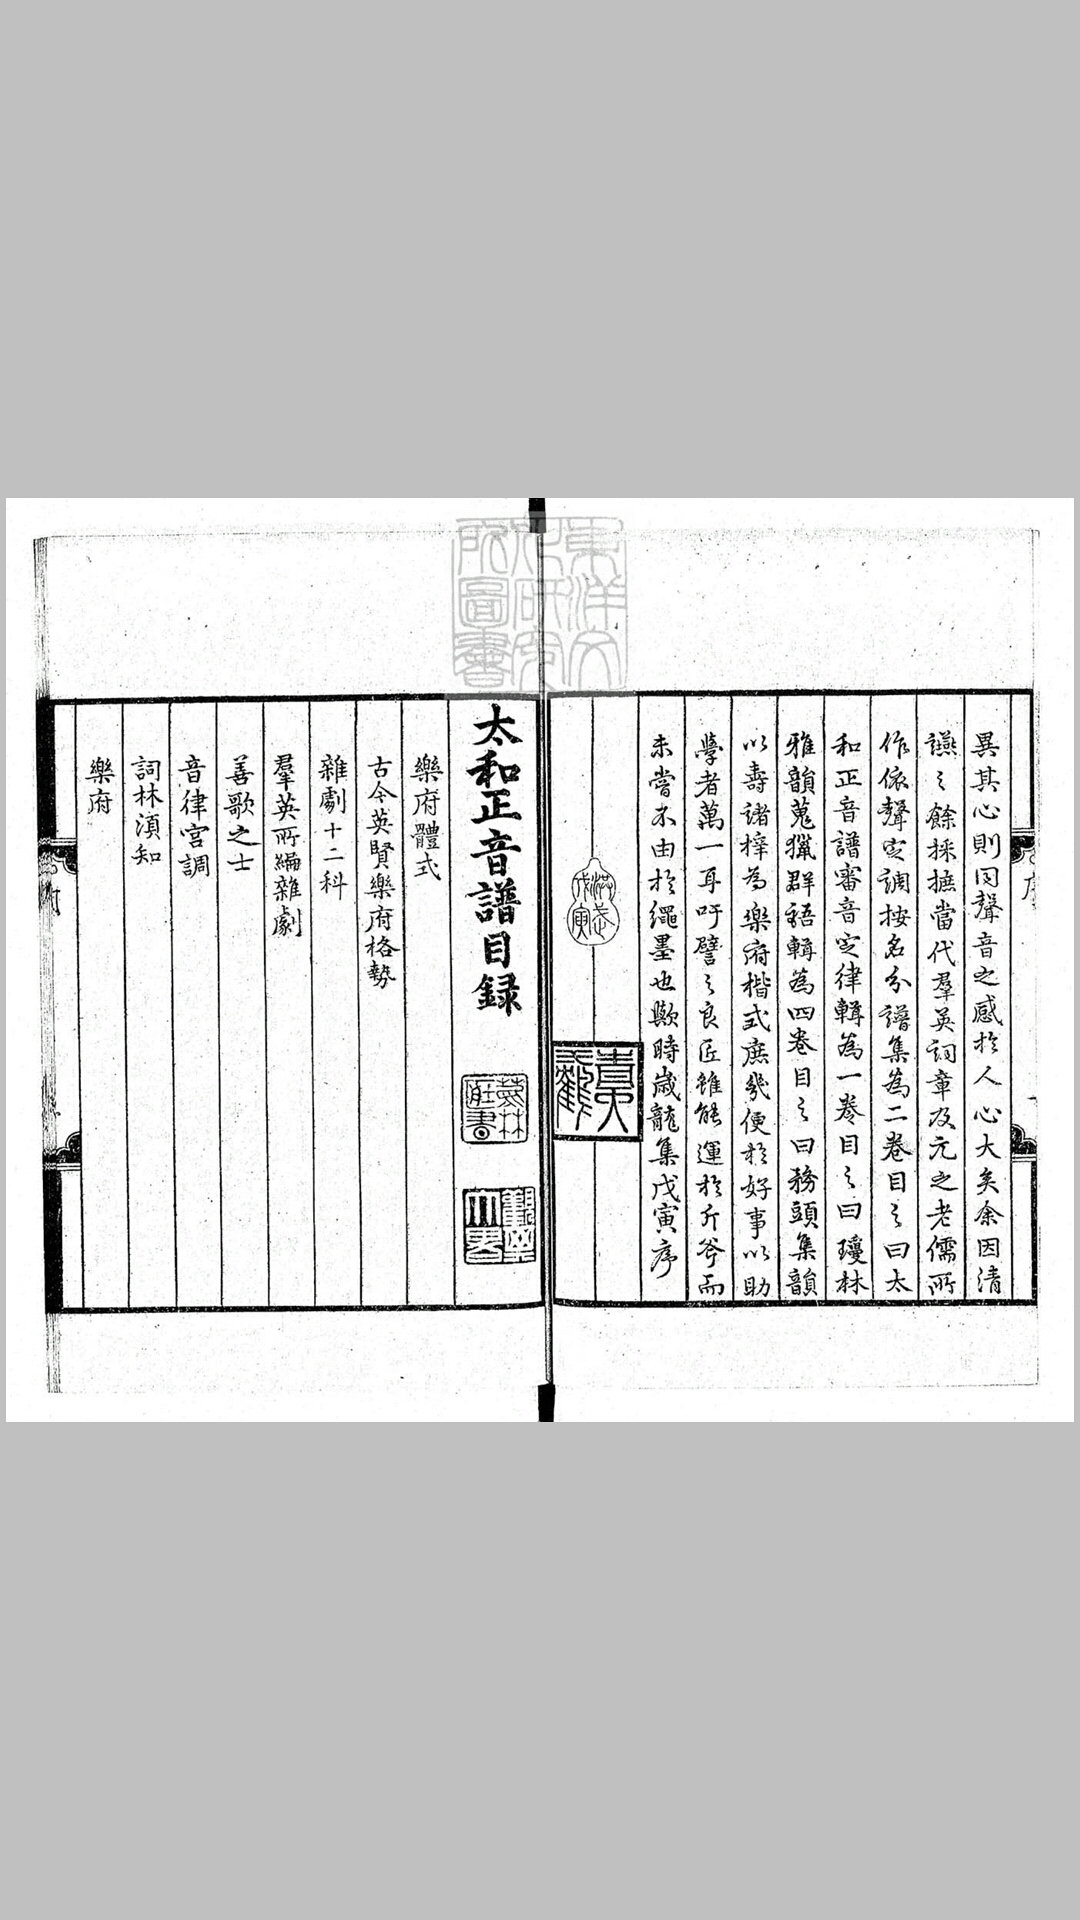 異其心則同聲音之感於人心大矣余因清
讌之餘採摭當代羣英詞章及元之老儒所
作依聲定調按名分譜集為二卷目之曰太
和正音譜審音定律輯為一卷目之曰瓊林
雅韻蒐獵群語輯為四卷目之曰務頭集韻
以壽諸梓為樂府楷式庶幾便於好事以助
學者萬一耳吁譬之良匠雖能運於斤斧而
未嘗不由於繩墨也歟時歲龍集戊寅序
洪武
戊寅
青天
太和正音譜目録
樂府體式
古今英賢樂府格勢
雜劇十二科
羣英所編雜劇
善歌之士
音律宮調
詞林湏知
樂府
東洋文
化研究
所圖書